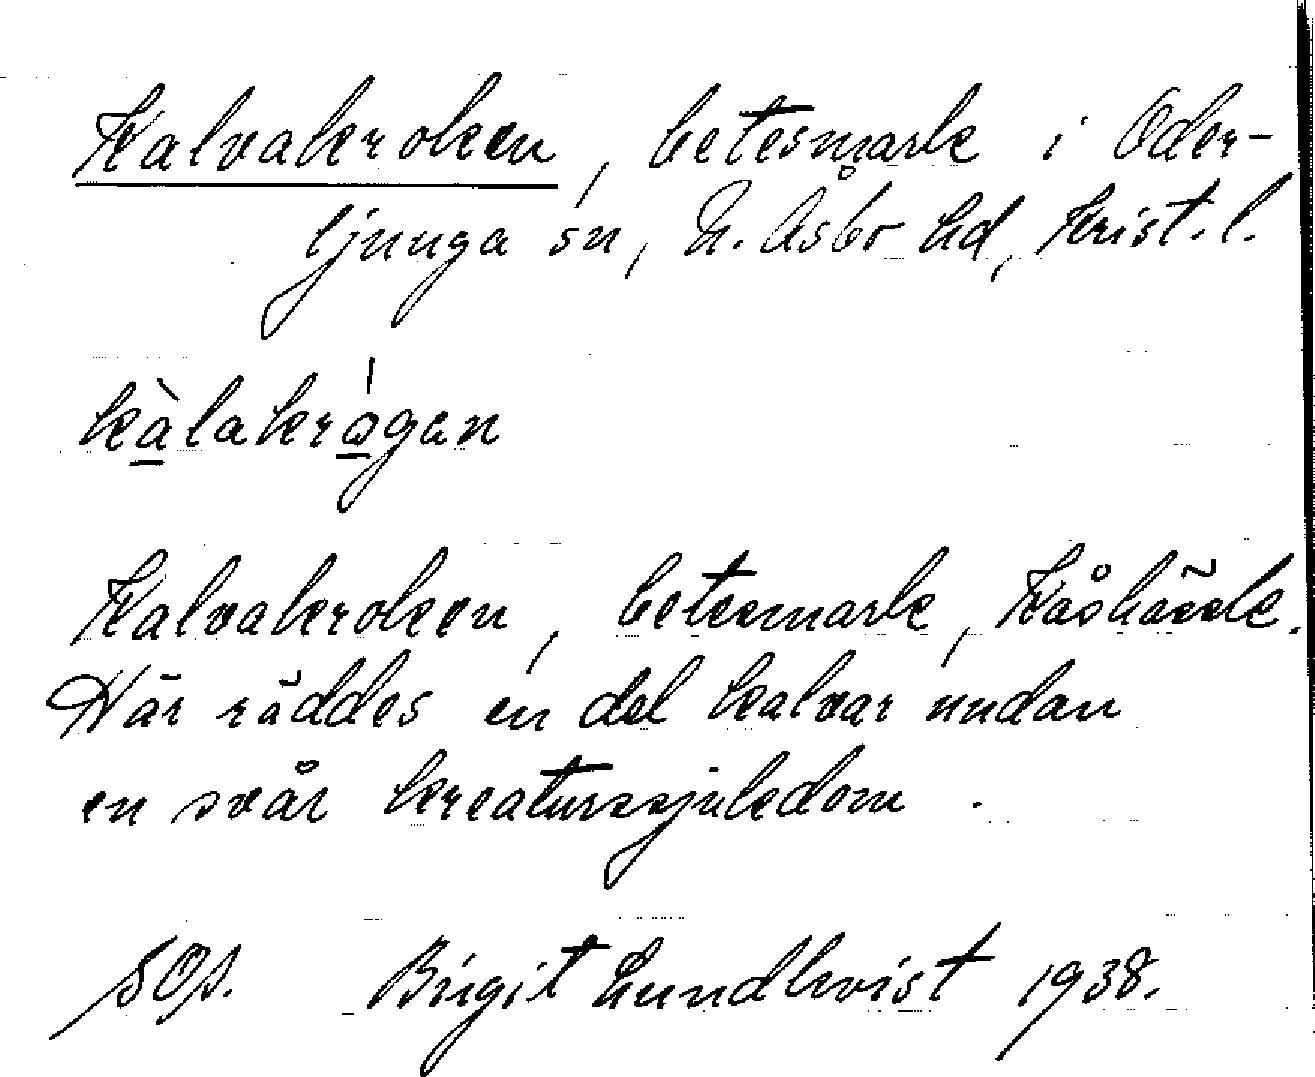 Kalvakroken, betesmark i Oder-
ljunga sn, N. Åsbo hd, Krist. l.
kàlakrågan
Kalvakroken, betesmark,
Här räddes en del kalvar undan
en svår kreaturssjukdom.
Birgit Lundkvist 1938.